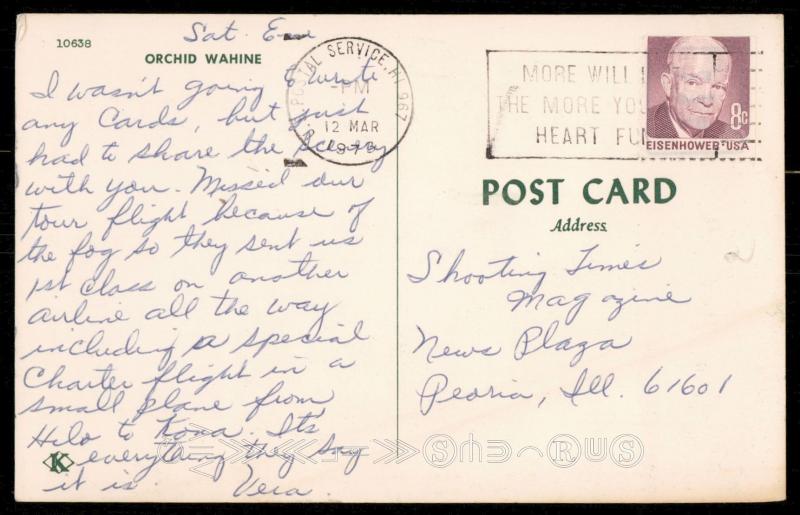 10638
ORCHID WAHINE
Sat. Eve
I wasn't going to write
any Cards, but just
had to share the scenery
with you. Missed our
tour flight because of
the fog so they sent us
1st Class on another
airline all the way
including a special
Charter flight in a
small plane from
Hilo to Kona. It's
everything they say
it is. Vera.
K
POSTAL SERVICE, HI 967
PM
12 MAR
MORE WILL
THE MORE YOU
HEART FU
8c
EISENHOWER·USA
POST CARD
Address
Shooting Times
Magazine
News Plaza
Peoria, Ill. 61601